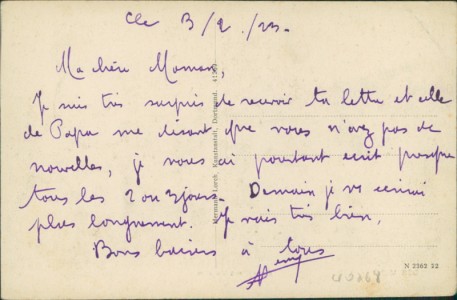 Cle 3/2/23.
Ma chère Maman,
Je suis très surpris de recevoir ta lettre et celle
de Papa me disant que vous n'avez pas de
nouvelles, je vous ai pourtant ecrit presque
tous les 2 ou 3 jours. Demain je vs ecrirai
plus longuement. Je vais très bien,
Bons baisers à tous
Hermann Lorch, Kunstanstalt, Dortmund.
N 2363 22